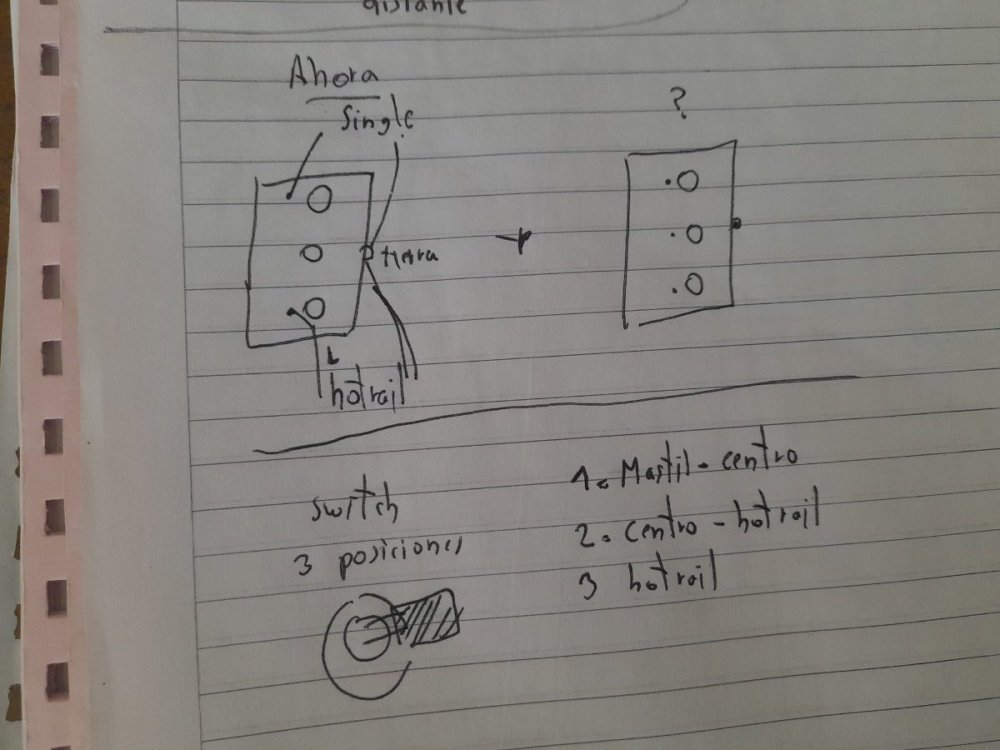 distante
Ahora
Single
?
tierra
hotrail
switch
3 posiciones
1. Mastil - centro
2. centro - hotrail
3 hotrail